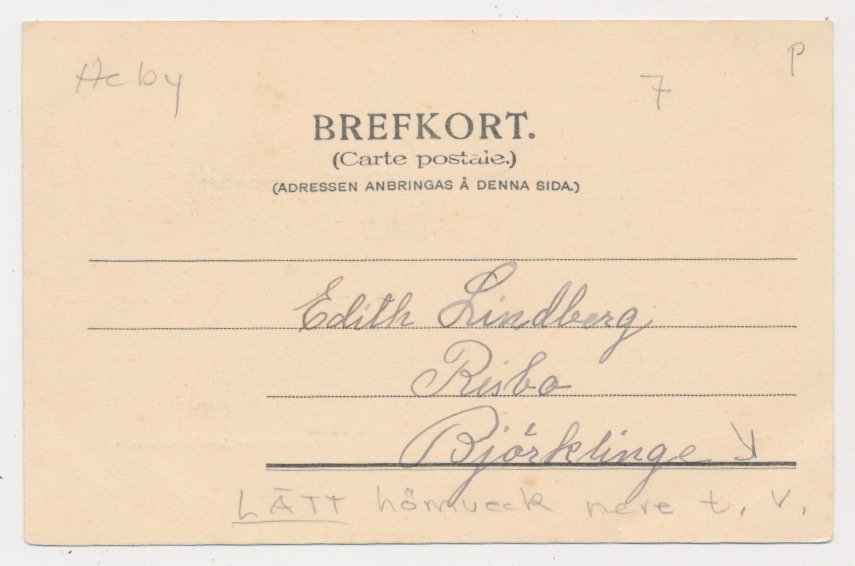 Heby
7
P
BREFKORT.
(Carte postale.)
(ADRESSEN ANBRINGAS Å DENNA SIDA.)
Edith Lindberg
Risbo
Björklinge
LÄTT hörnveck nere t. v.